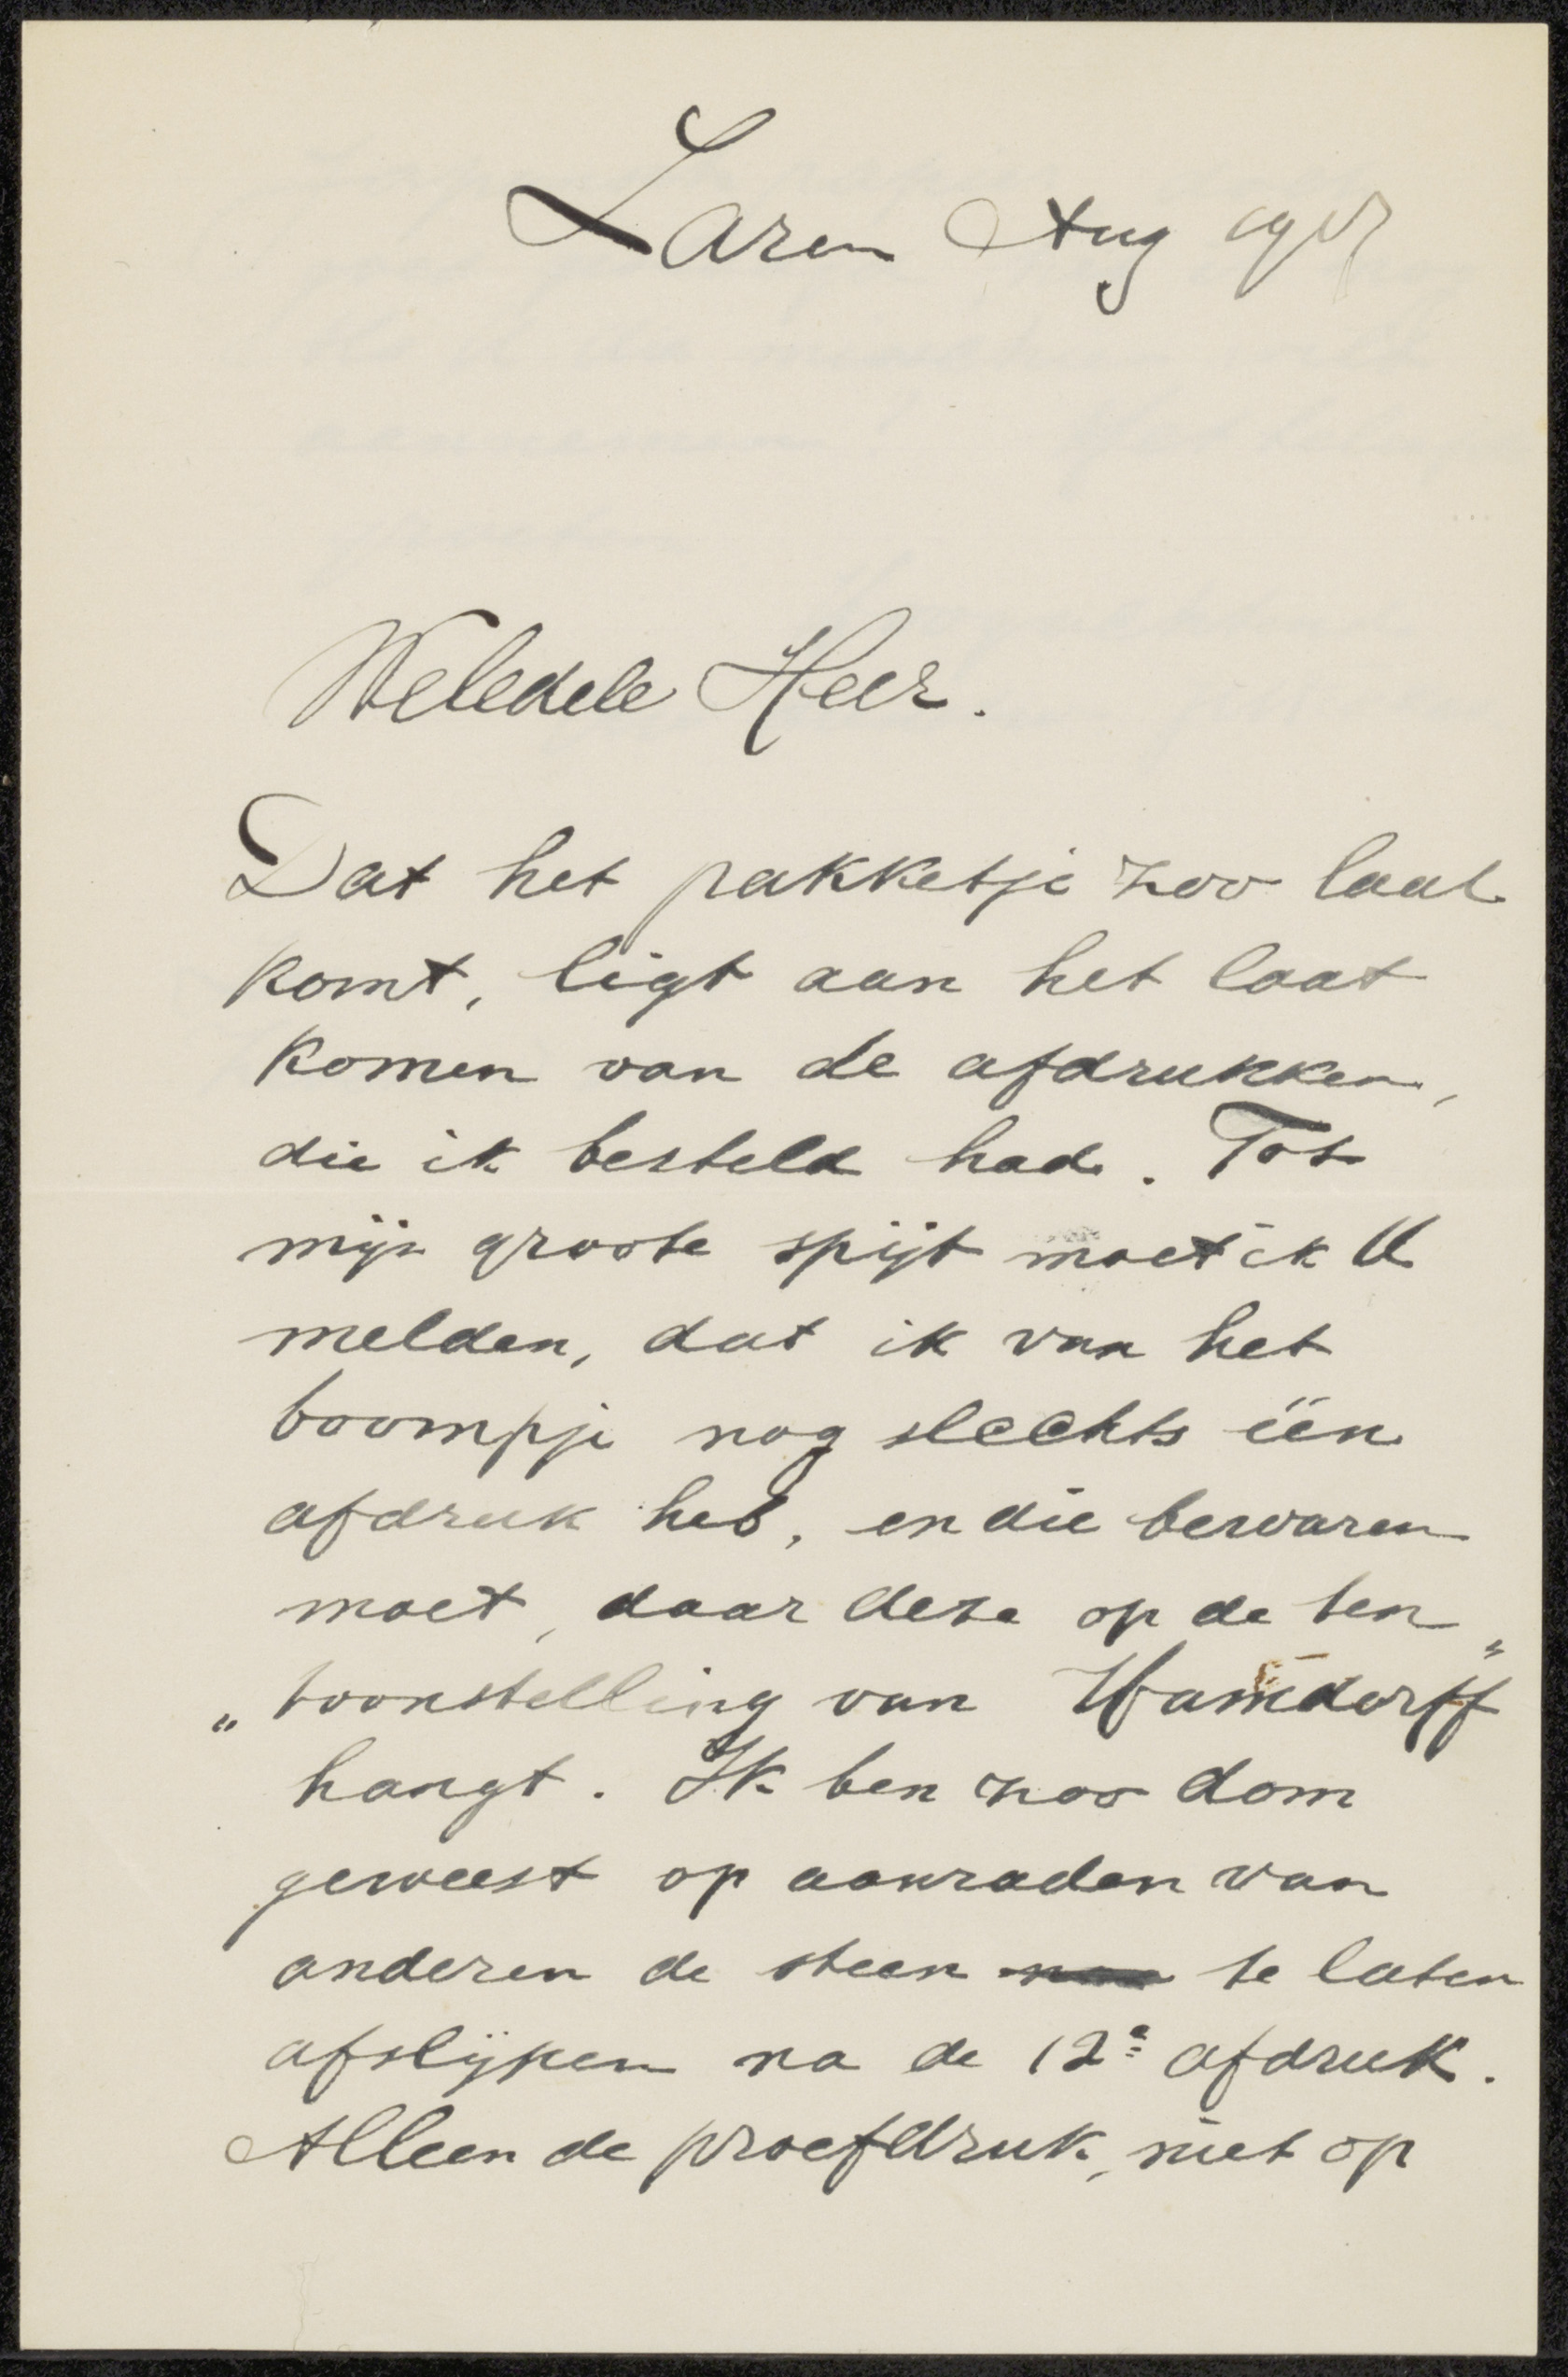 Laren Aug
Weledele Heer.
Dat het pakketje zoo laat
komt, ligt aan het laat
komen van de afdrukken,
die ik besteld had. Tot
mijn groote spijt moet ik U
melden, dat ik van het
boompje nog slechts één
afdruk heb, en die bewaren
moet, daar deze op de ten„
„toonstelling van Hamdorff
hangt. Ik ben zoo dom
geweest op aanraden van
anderen de steen te laten
afslijpen na de 12e afdruk.
Alleen de proefdruk, niet op